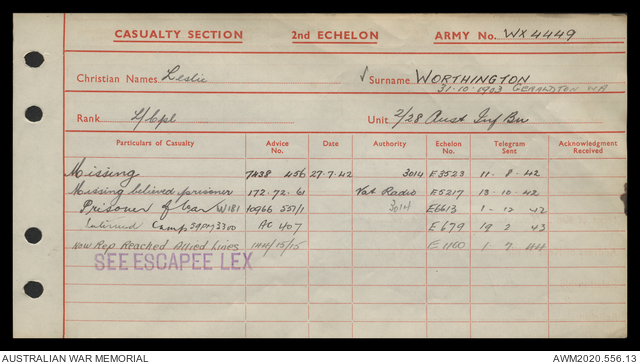 CASUALTY SECTION 2nd ECHELON ARMY No. WX4449
Christian Names Leslie √ Surname WORTHINGTON
31.10.1903 GERALDTON WA
Rank L/Cpl Unit 2/28 Aust Inf Bn
Particulars of Casualty Advice No. Date Authority Echelon No. Telegram Sent Acknowledgment Received
Missing 7438 456 27.7.42 3014 E3523 11.8.42
Missing believed prisoner 172.72.61 Vat Radio E5217 13.10.42
Prisoner of War W181 10966 557/1 3014 E6613 1-12 42
Interned Camp AC 407 E679 19 2 43
Now Rep Reached Allied Lines E1100 1.7.44
SEE ESCAPEE LEX
AUSTRALIAN WAR MEMORIAL AWM2020.556.13